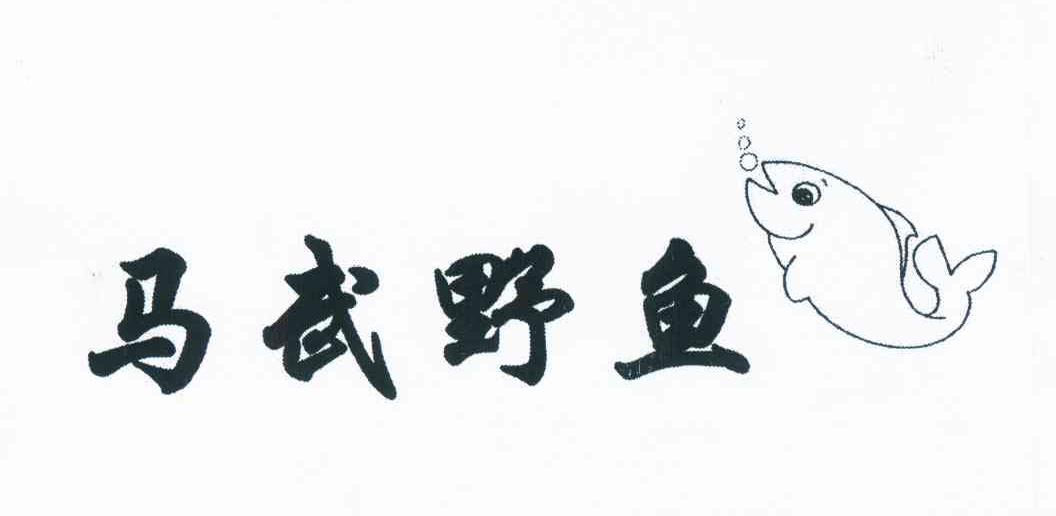 马武野鱼